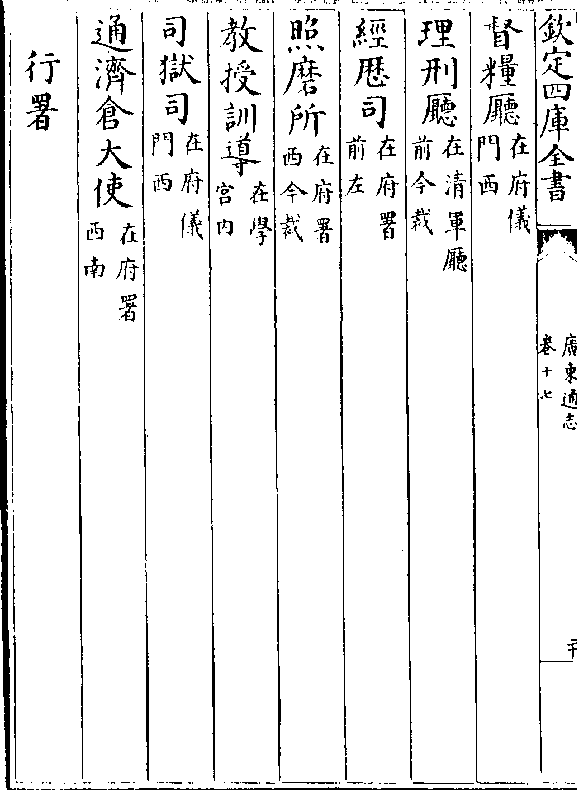 欽定四庫全書
廣東通志
卷十七
督糧廳在府儀門西
理刑廳在清軍廳前今裁
經歷司在府署前左
照磨所在府署西今裁
教授訓導在學宮内
司獄司在府儀門西
通濟倉大使在府署西南
行署